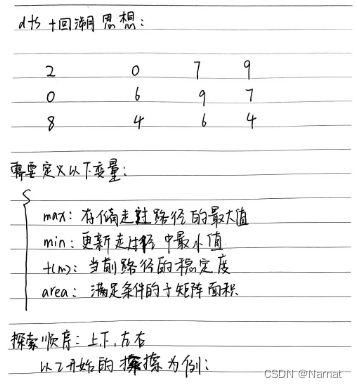 dfs + 回溯 思想：
2 0 7 9
0 6 9 7
8 4 6 4
需要定义以下变量：
max: 存储走过路径的最大值
min: 更新走过路径中最小值
f(m): 当前路径的稳定度
area: 满足条件的子矩阵面积
探索顺序：上下，左右
以2开始的 探索为例：
CSDN @Narnat